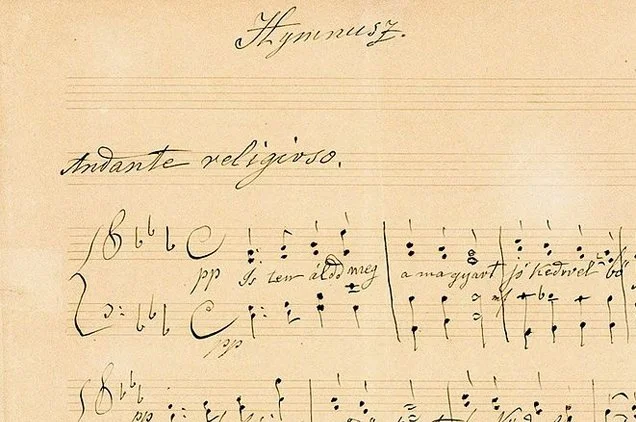 Hymnusz.
Andante religioso.
pp Is ten áldd meg a magyart jó kedvvel bő
mf
pp
pp